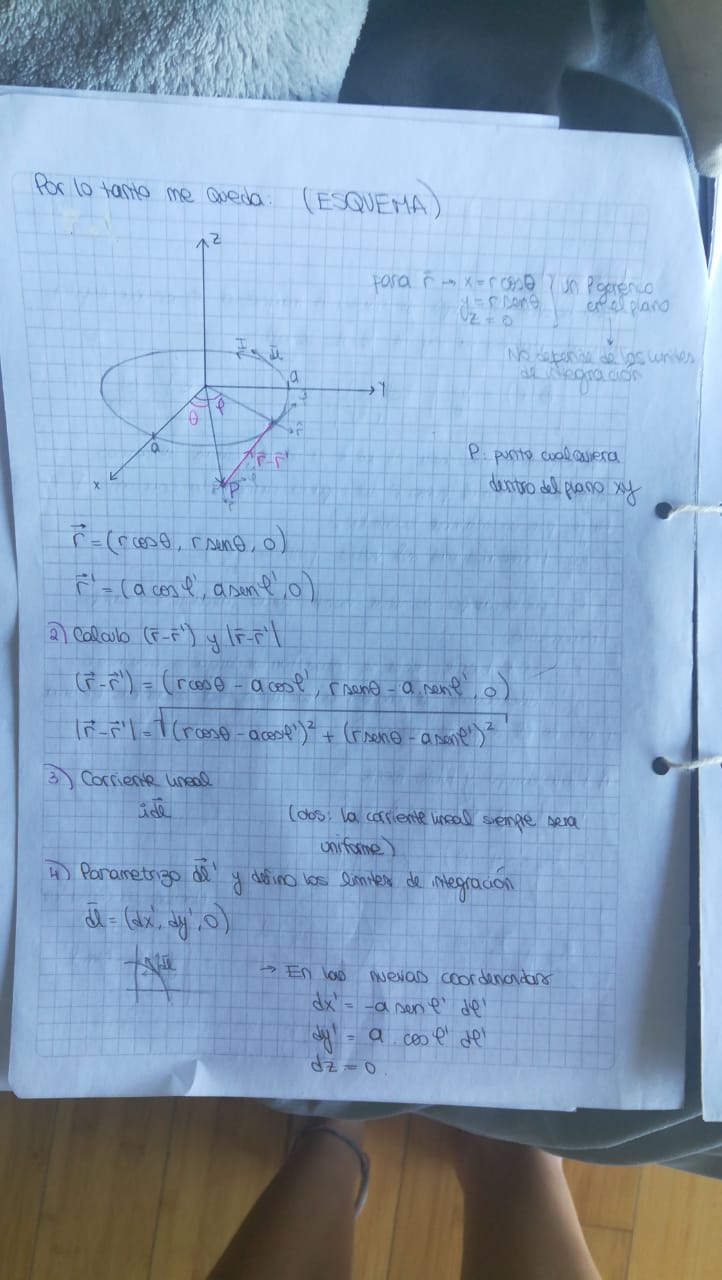 Por lo tanto me queda: (ESQUEMA)
z
para r⃗ → x = r cosθ
y = r senθ
z = 0
un P genérico
en el plano
↓
No depende de los límites
de integración
a
y
θ φ
r⃗-r⃗'
P
a
x
P: punto cualquiera
dentro del plano xy
r⃗ = (r cosθ, r senθ, 0)
r⃗' = (a cosφ', a senφ', 0)
2) Calculo (r⃗-r⃗') y |r⃗-r⃗'|
(r⃗-r⃗') = (r cosθ - a cosφ', r senθ - a senφ', 0)
|r⃗-r⃗'| = √((r cosθ - a cosφ')² + (r senθ - a senφ')²)
3) Corriente lineal
i dl⃗ (obs: la corriente lineal siempre sera
uniforme)
4) Parametrizo dl⃗' y defino los límites de integración
dl⃗ = (dx', dy', 0)
→ En las nuevas coordenadas
dx' = -a senφ' dφ'
dy' = a . cosφ' dφ'
dz = 0.